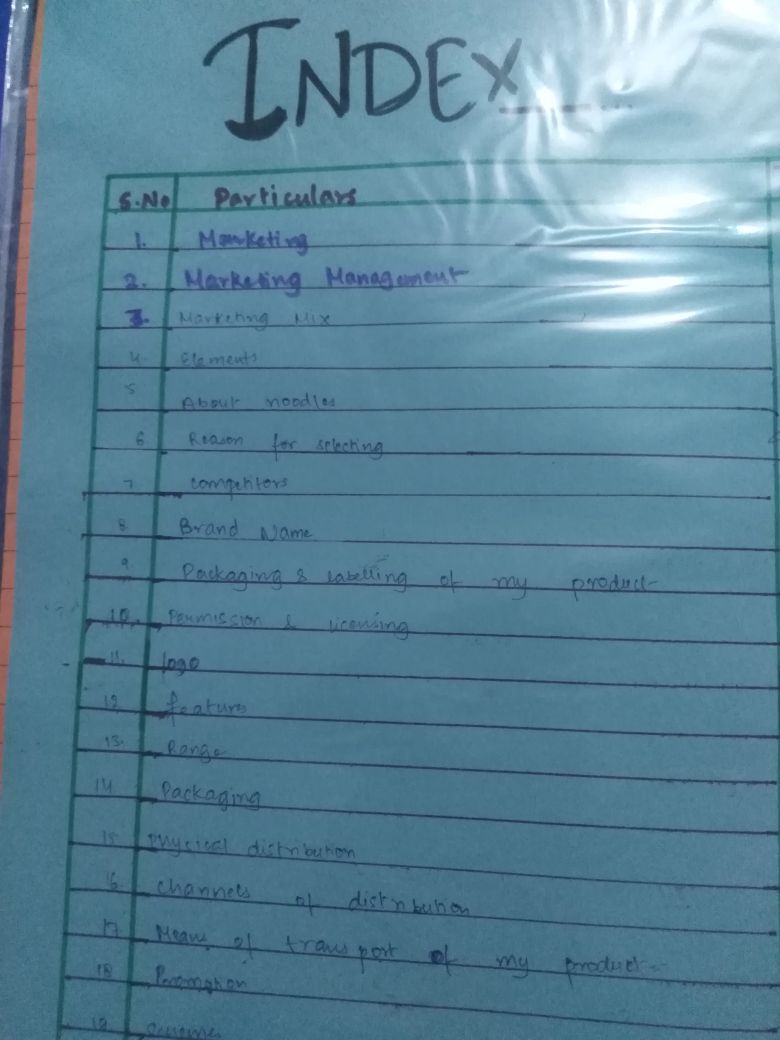 INDEX
S.No Particulars
1. Marketing
2. Marketing Management
3. Marketing Mix
4. Elements
5 About noodles
6 Reason for selecting
7 competitors
8 Brand Name
9 Packaging & labelling of my product
10. Permission & licensing
11. logo
12 features
13. Range
14 Packaging
15 Physical distribution
16 channels of distribution
17 Means of transport of my product
18 Promotion
19 scheme